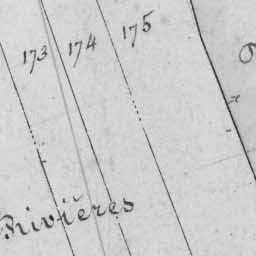 173 174 175
Rivières